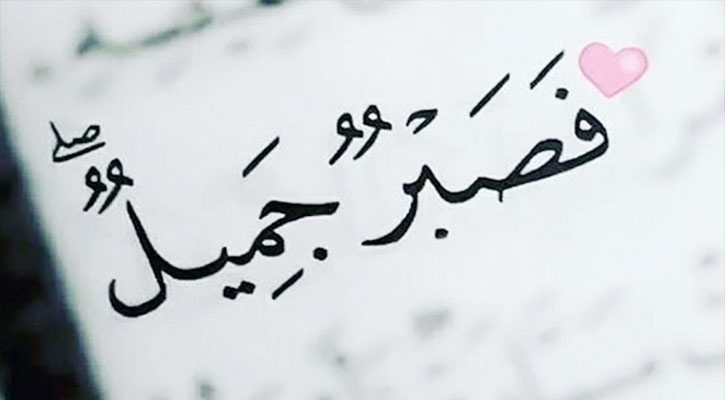 فَصَبْرٌ جَمِيلٌ ۖ